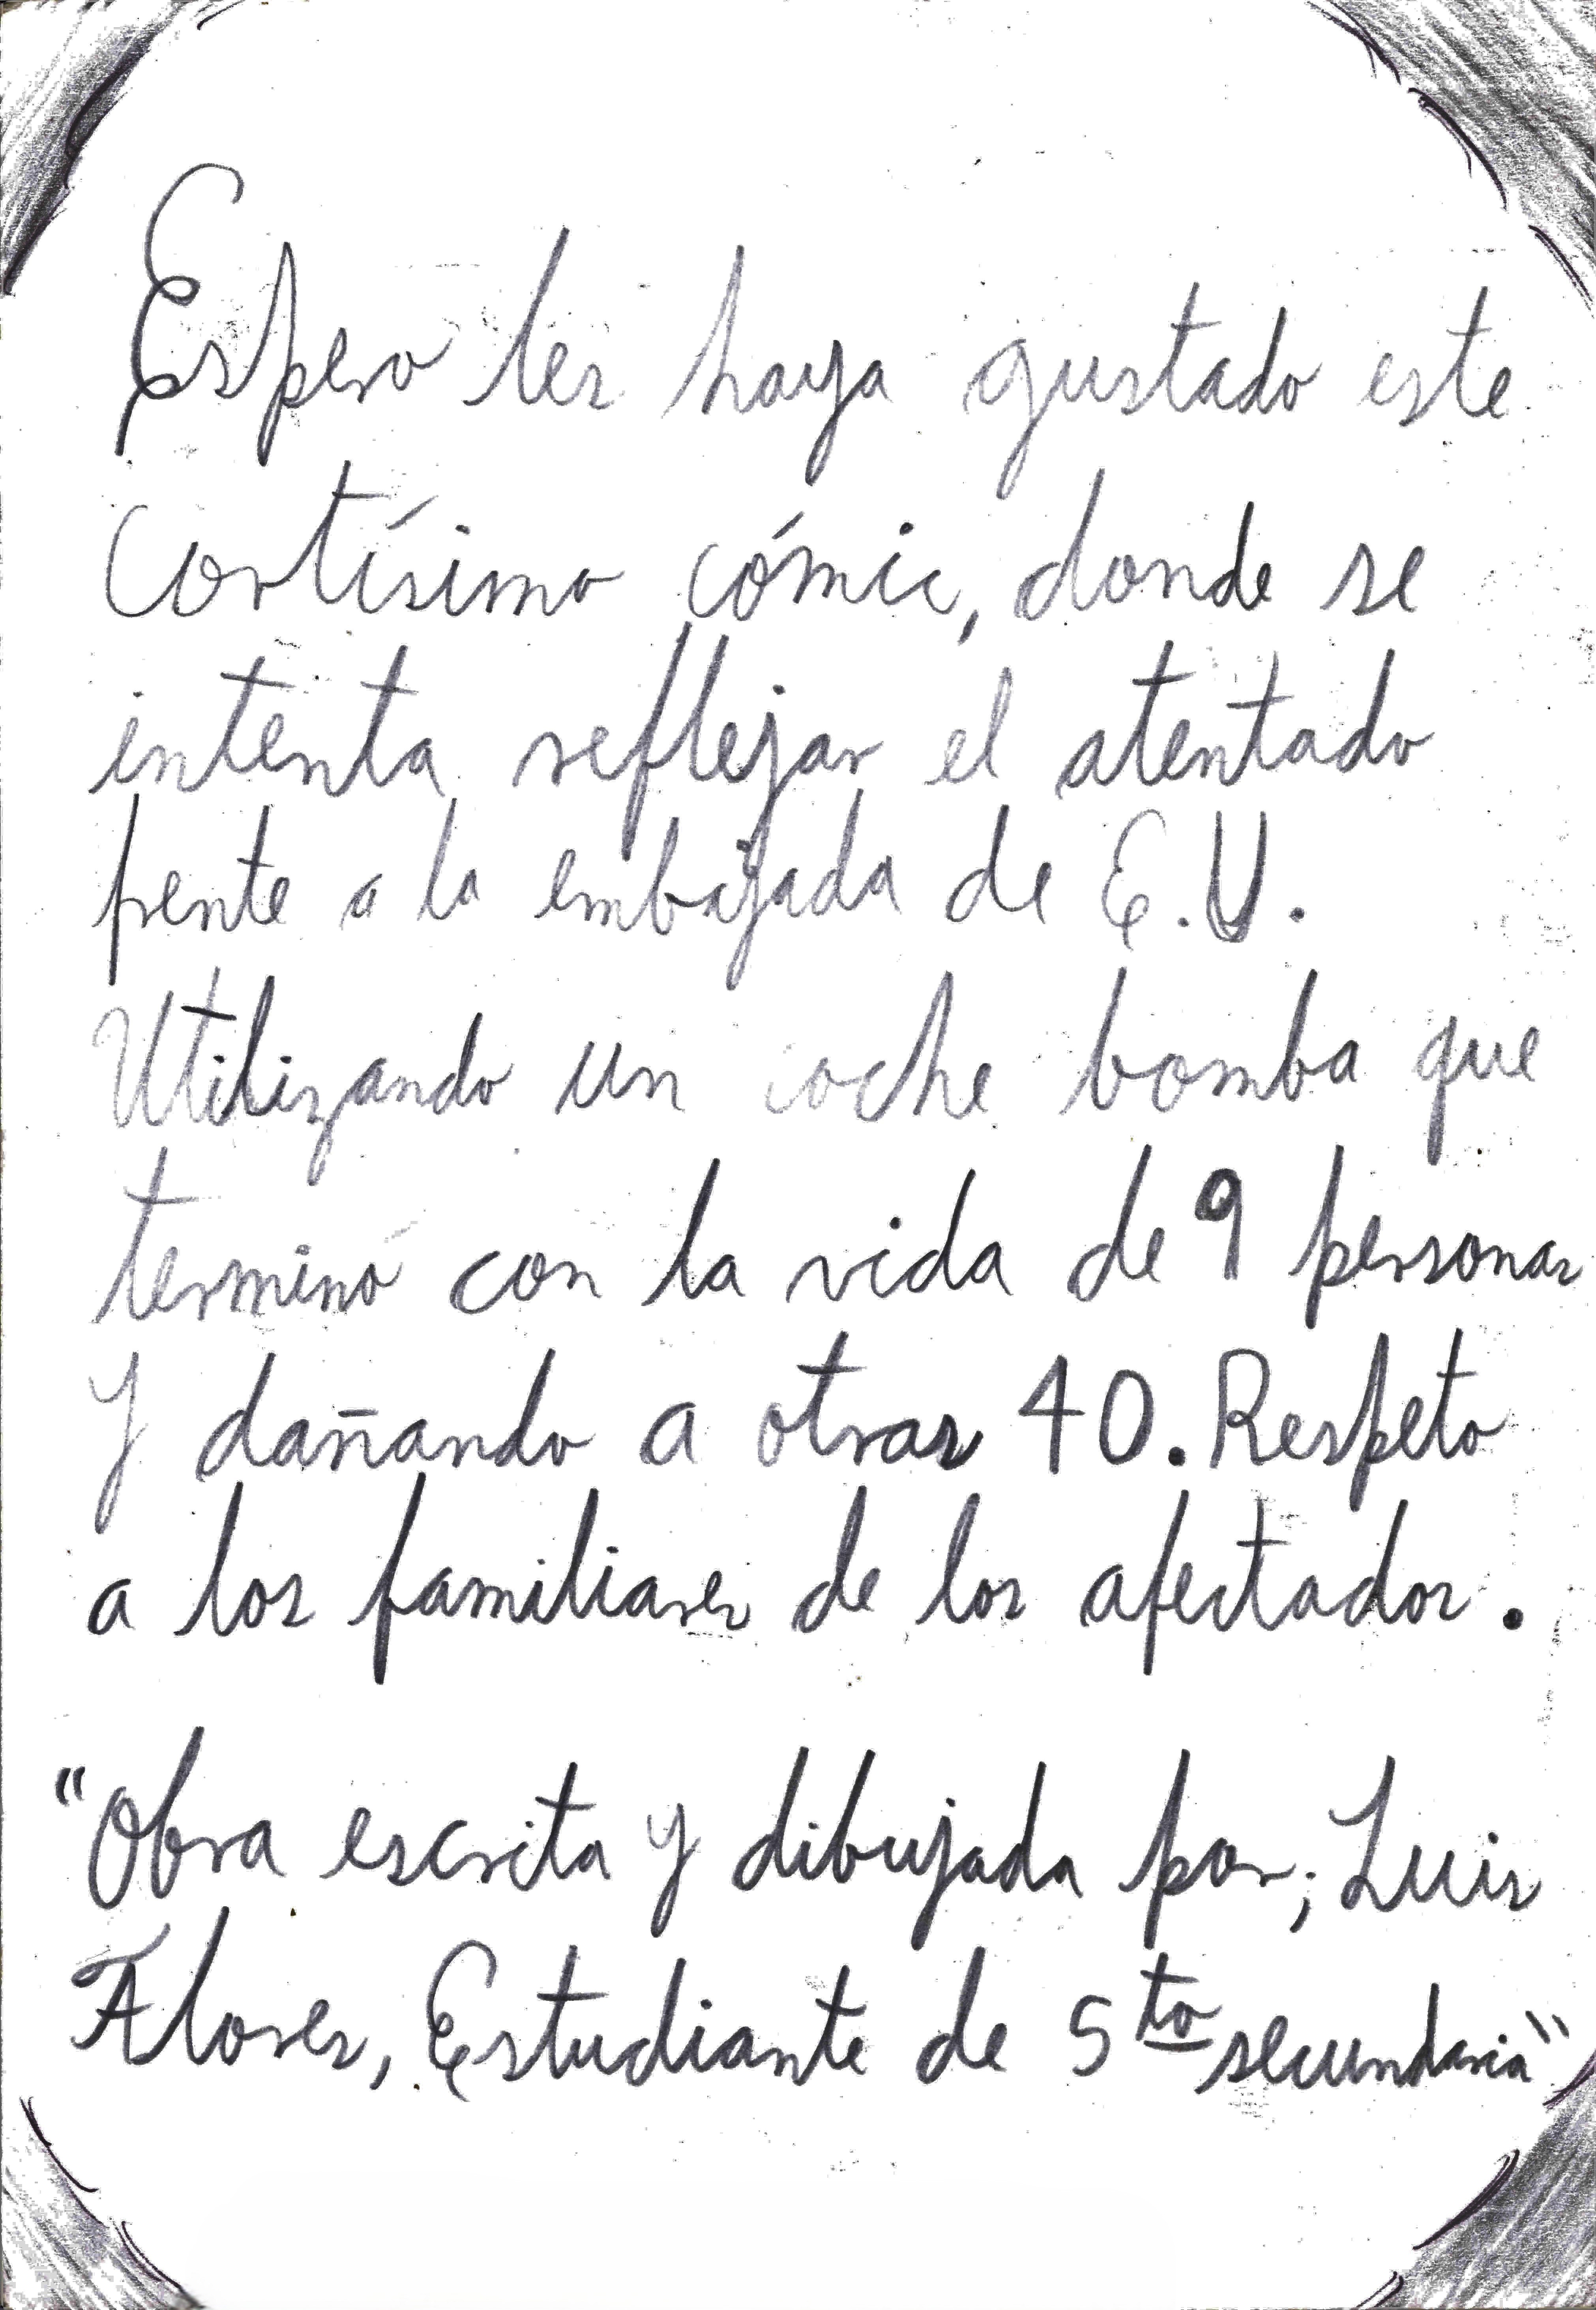 Espero les haya gustado este
cortísimo cómic, donde se
intenta reflejar el atentado
frente a la embajada de E.U.
Utilizando un coche bomba que
terminó con la vida de 9 personas
y dañando a otras 40. Respeto
a los familiares de los afectados.
"Obra escrita y dibujada por; Luis
Flores, Estudiante de 5to secundaria"